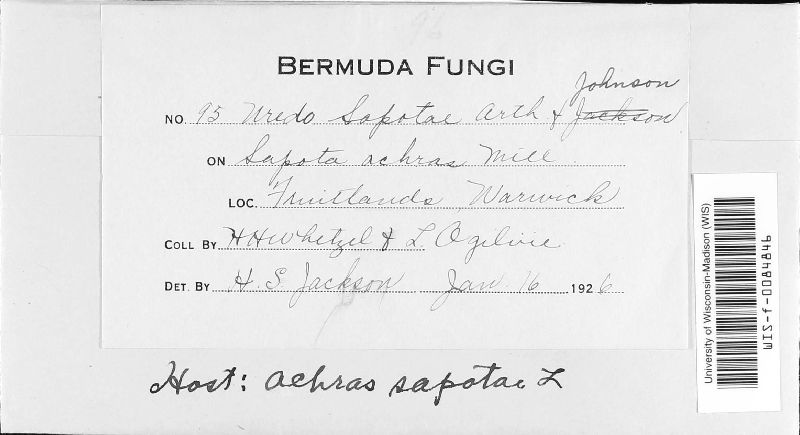 96
BERMUDA FUNGI
Johnson
NO. 95 Uredo Sapotae Arth & Jackson
ON Sapota achras Mill
LOC. Fruitlands, Warwick
COLL BY H H Whetzel & L. Ogilvie
DET. BY H. S. Jackson Jan. 16 1926
Host: Achras sapotae L
University of Wisconsin-Madison (WIS)
WIS-f-0084846